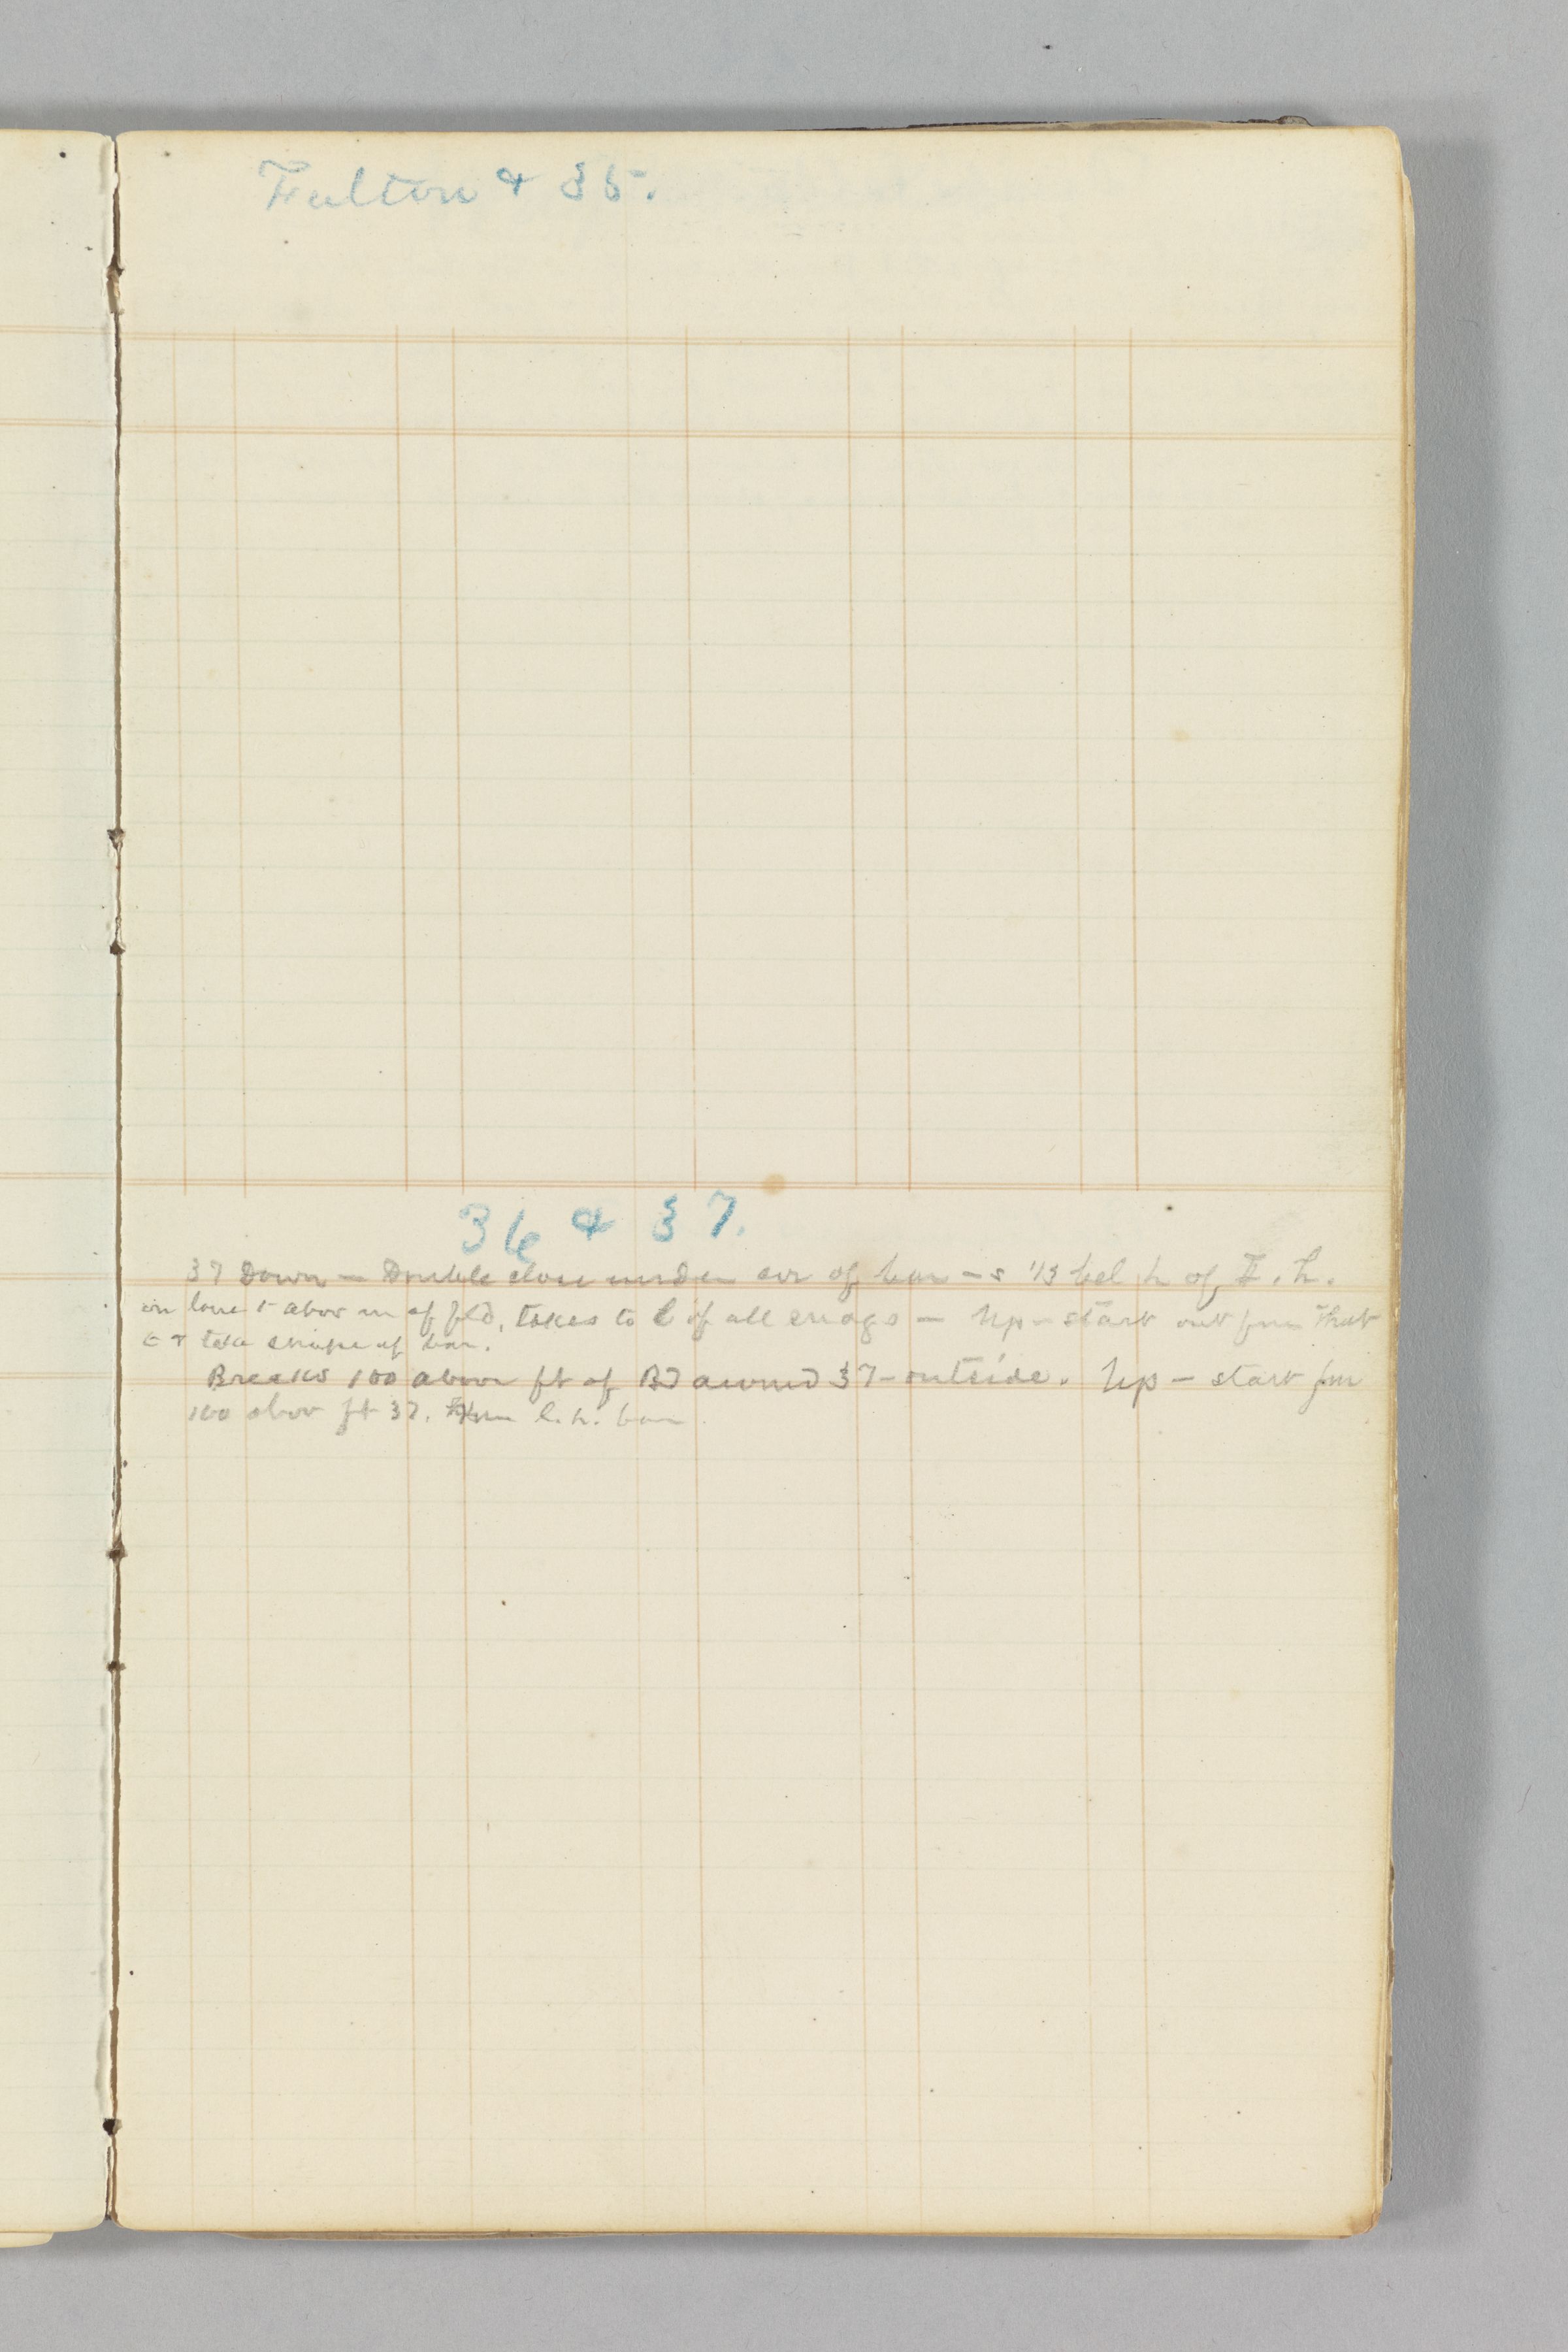 Fulton & 35.
36 & 37.
37 Down — Double close under cor of bar — s 1/3 bel h of I. h.
in line abov m of fld, takes to l of all snags — Up — start out frm that
& take shape of bar.
Breaks 100 above ft of BJ around 37 — outside. Up — start frm
100 abov ft 37. l. h. bar